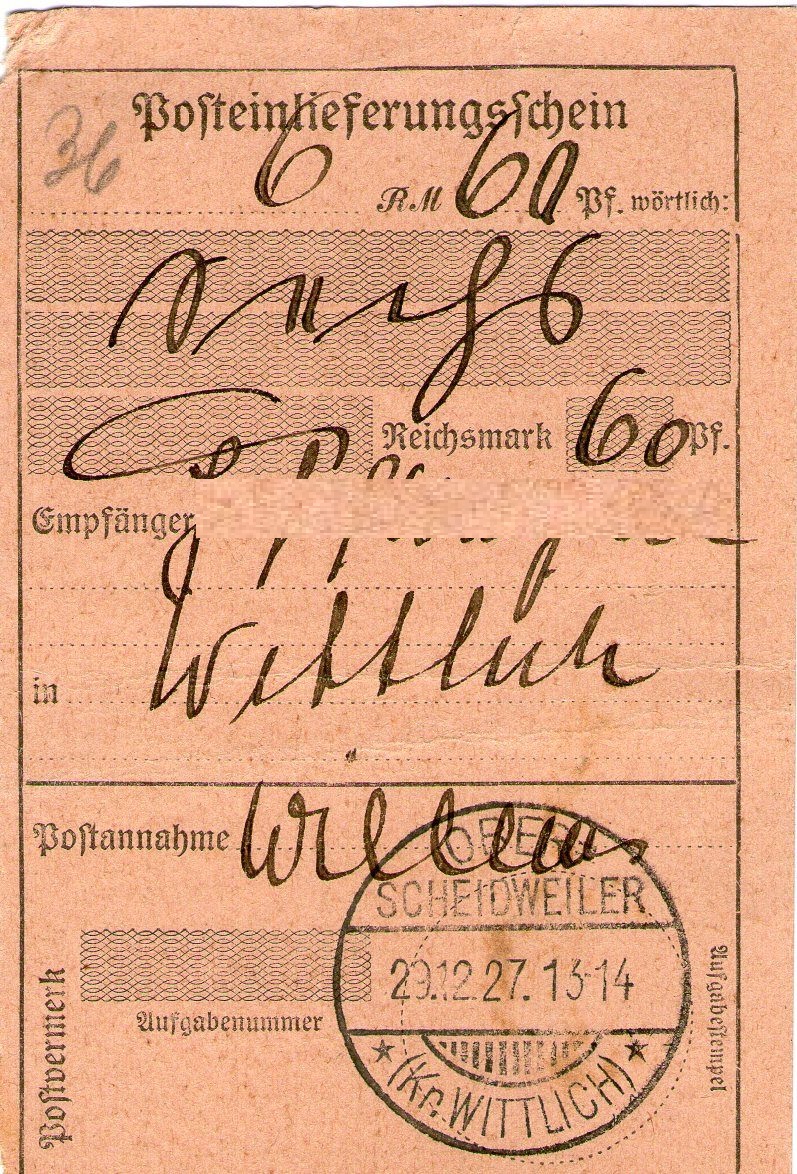 36
Posteinlieferungsschein
6 RM 60 Pf. wörtlich:
sechs
Reichsmark 60 Pf.
Empfänger
in Wittlich
Postannahme Willems
OBER-
SCHEIDWEILER
29.12.27. 13-14
(Kr. WITTLICH)
Aufgabenummer
Postvermerk
Aufgabestempel